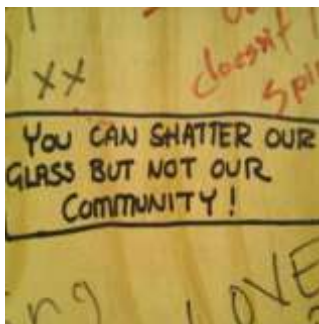 XX
doesn't
YOU CAN SHATTER OUR
GLASS BUT NOT OUR
COMMUNITY!
LOVE